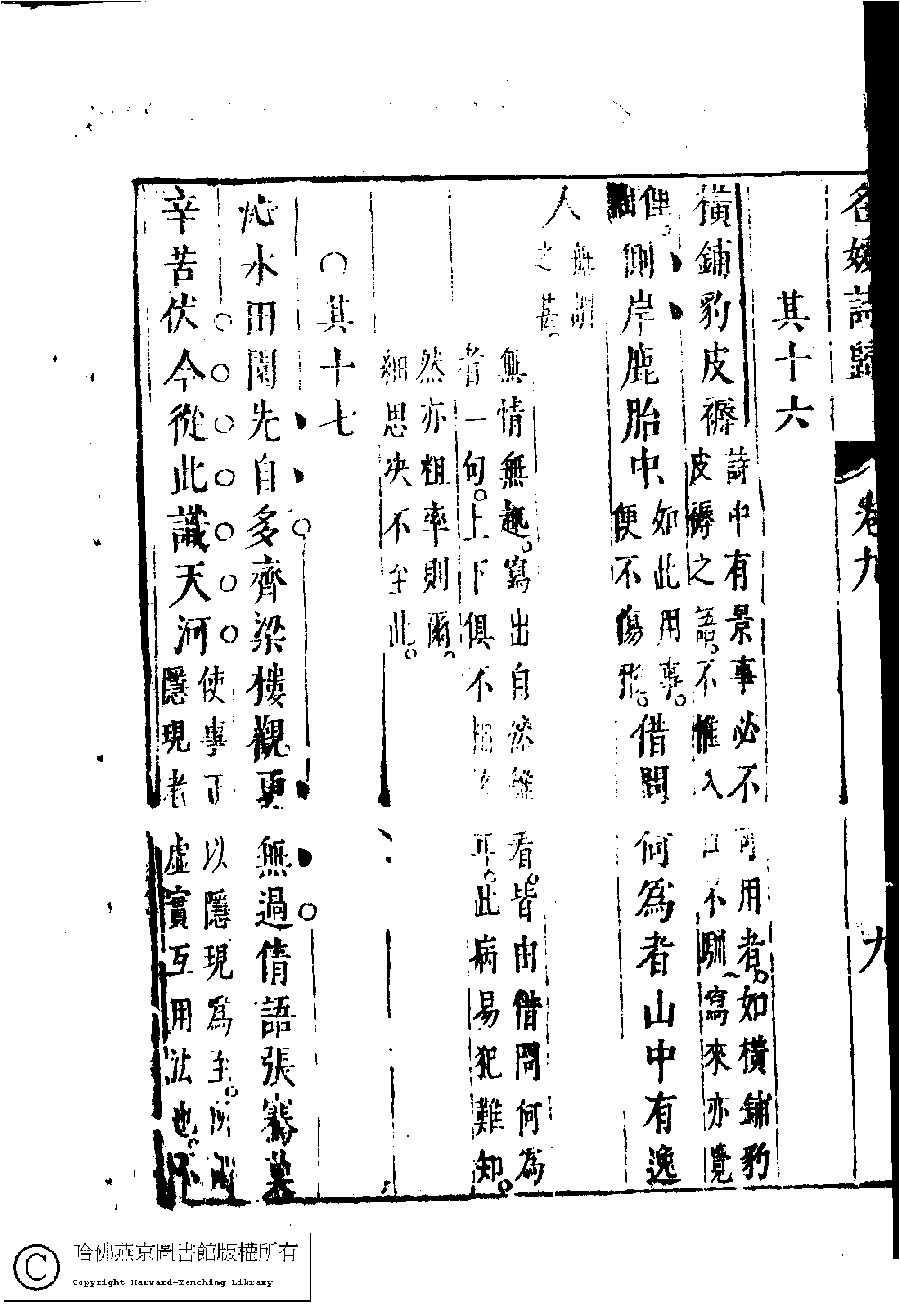 名媛詩歸 卷九 九
其十六
橫鋪豹皮褥
詩中有景事必不可用者。如橫鋪豹
皮褥之語。不惟入口不馴寫來亦覺
俚。
側岸鹿胎中
如此用事。
便不傷雅。
借問何為者山中有逸
人
之甚。
無情無趣。寫出自然難看。皆由借問何為
者一句。上下俱不相耳。此病易犯難知。
然亦粗率則爾。
細思决不至此。
○其十七
沁水田園先自多齊梁樓觀更無過倩語張騫莫
辛苦伏今從此識天河
使事正以隱現為主。所謂
隱現者虛實互用法也。不
哈佛燕京圖書館版權所有
Copyright Harvard-Yenching Library